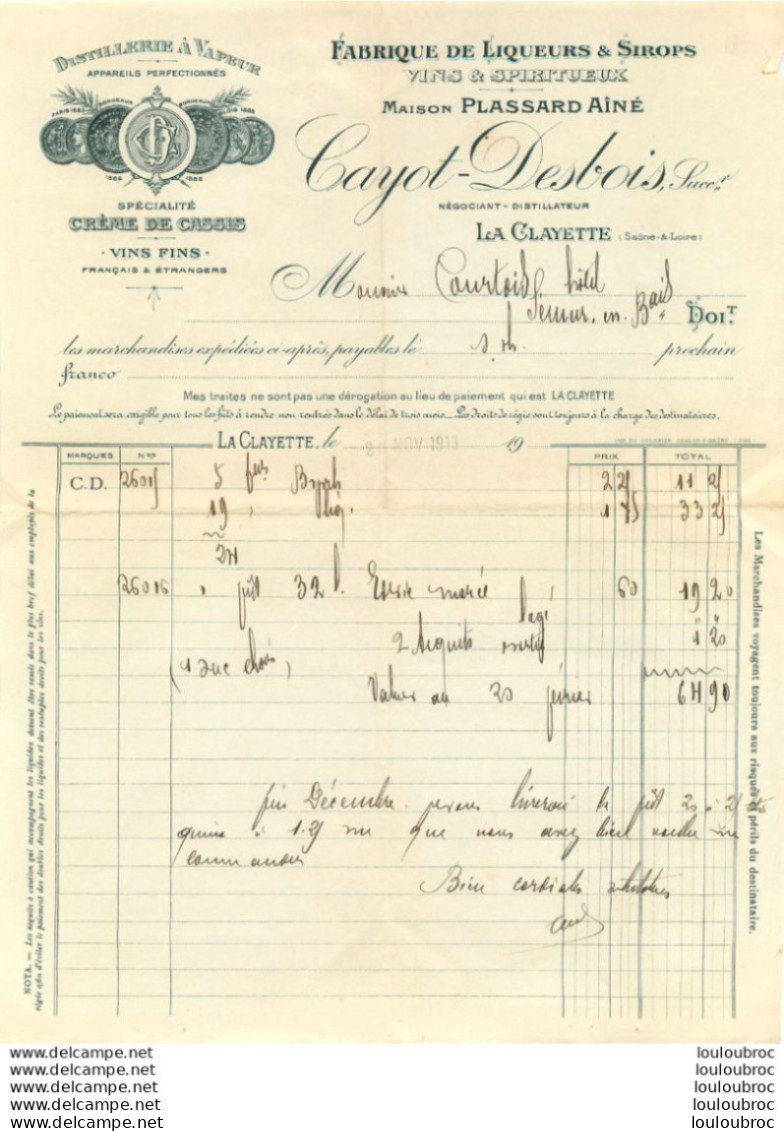 DISTILLERIE À VAPEUR
APPAREILS PERFECTIONNÉS
SPÉCIALITÉ
CRÈME DE CASSIS
VINS FINS
FRANÇAIS & ÉTRANGERS
FABRIQUE DE LIQUEURS & SIROPS
VINS & SPIRITUEUX
MAISON PLASSARD AÎNÉ
Cayot-Desbois, Succr,
NÉGOCIANT - DISTILLATEUR
LA CLAYETTE (Saône-&-Loire)
Monsieur Courtois hôtel
Semur-en-
DOIT.
les marchandises expédiées ci-après, payables le prochain
franco
Mes traites ne sont pas une dérogation au lieu de paiement qui est LA CLAYETTE
Le paiement sera exigible pour tous les fûts à rendre non rentrés dans le délai de trois mois. _ Les droits de régie sont toujours à la charge des destinataires.
LA CLAYETTE, le 20 NOV 1913 19
MARQUES Nos PRIX TOTAL
C.D. 26015 5 Byrrh 2 25 11 25
19 " 1 75 33 25
24
26016 " fût 32 l. 60 19 20
2 1 20
Valeur au 20 février 64 90
fin Décembre le fût 20 à 25
à 1.25 que vous avez bien voulu me
commander
Bien cordiales salutations
NOTA. — Les acquits à caution qui accompagnent les liquides doivent être remis dans le plus bref délai aux employés de la
régie afin d'éviter le paiement des doubles droits pour les liquides et des sextuples droits pour les vins.
Les Marchandises voyagent toujours aux risques et périls du destinataire.
www.delcampe.net louloubroc
www.delcampe.net louloubroc
www.delcampe.net louloubroc
www.delcampe.net louloubroc
www.delcampe.net louloubroc